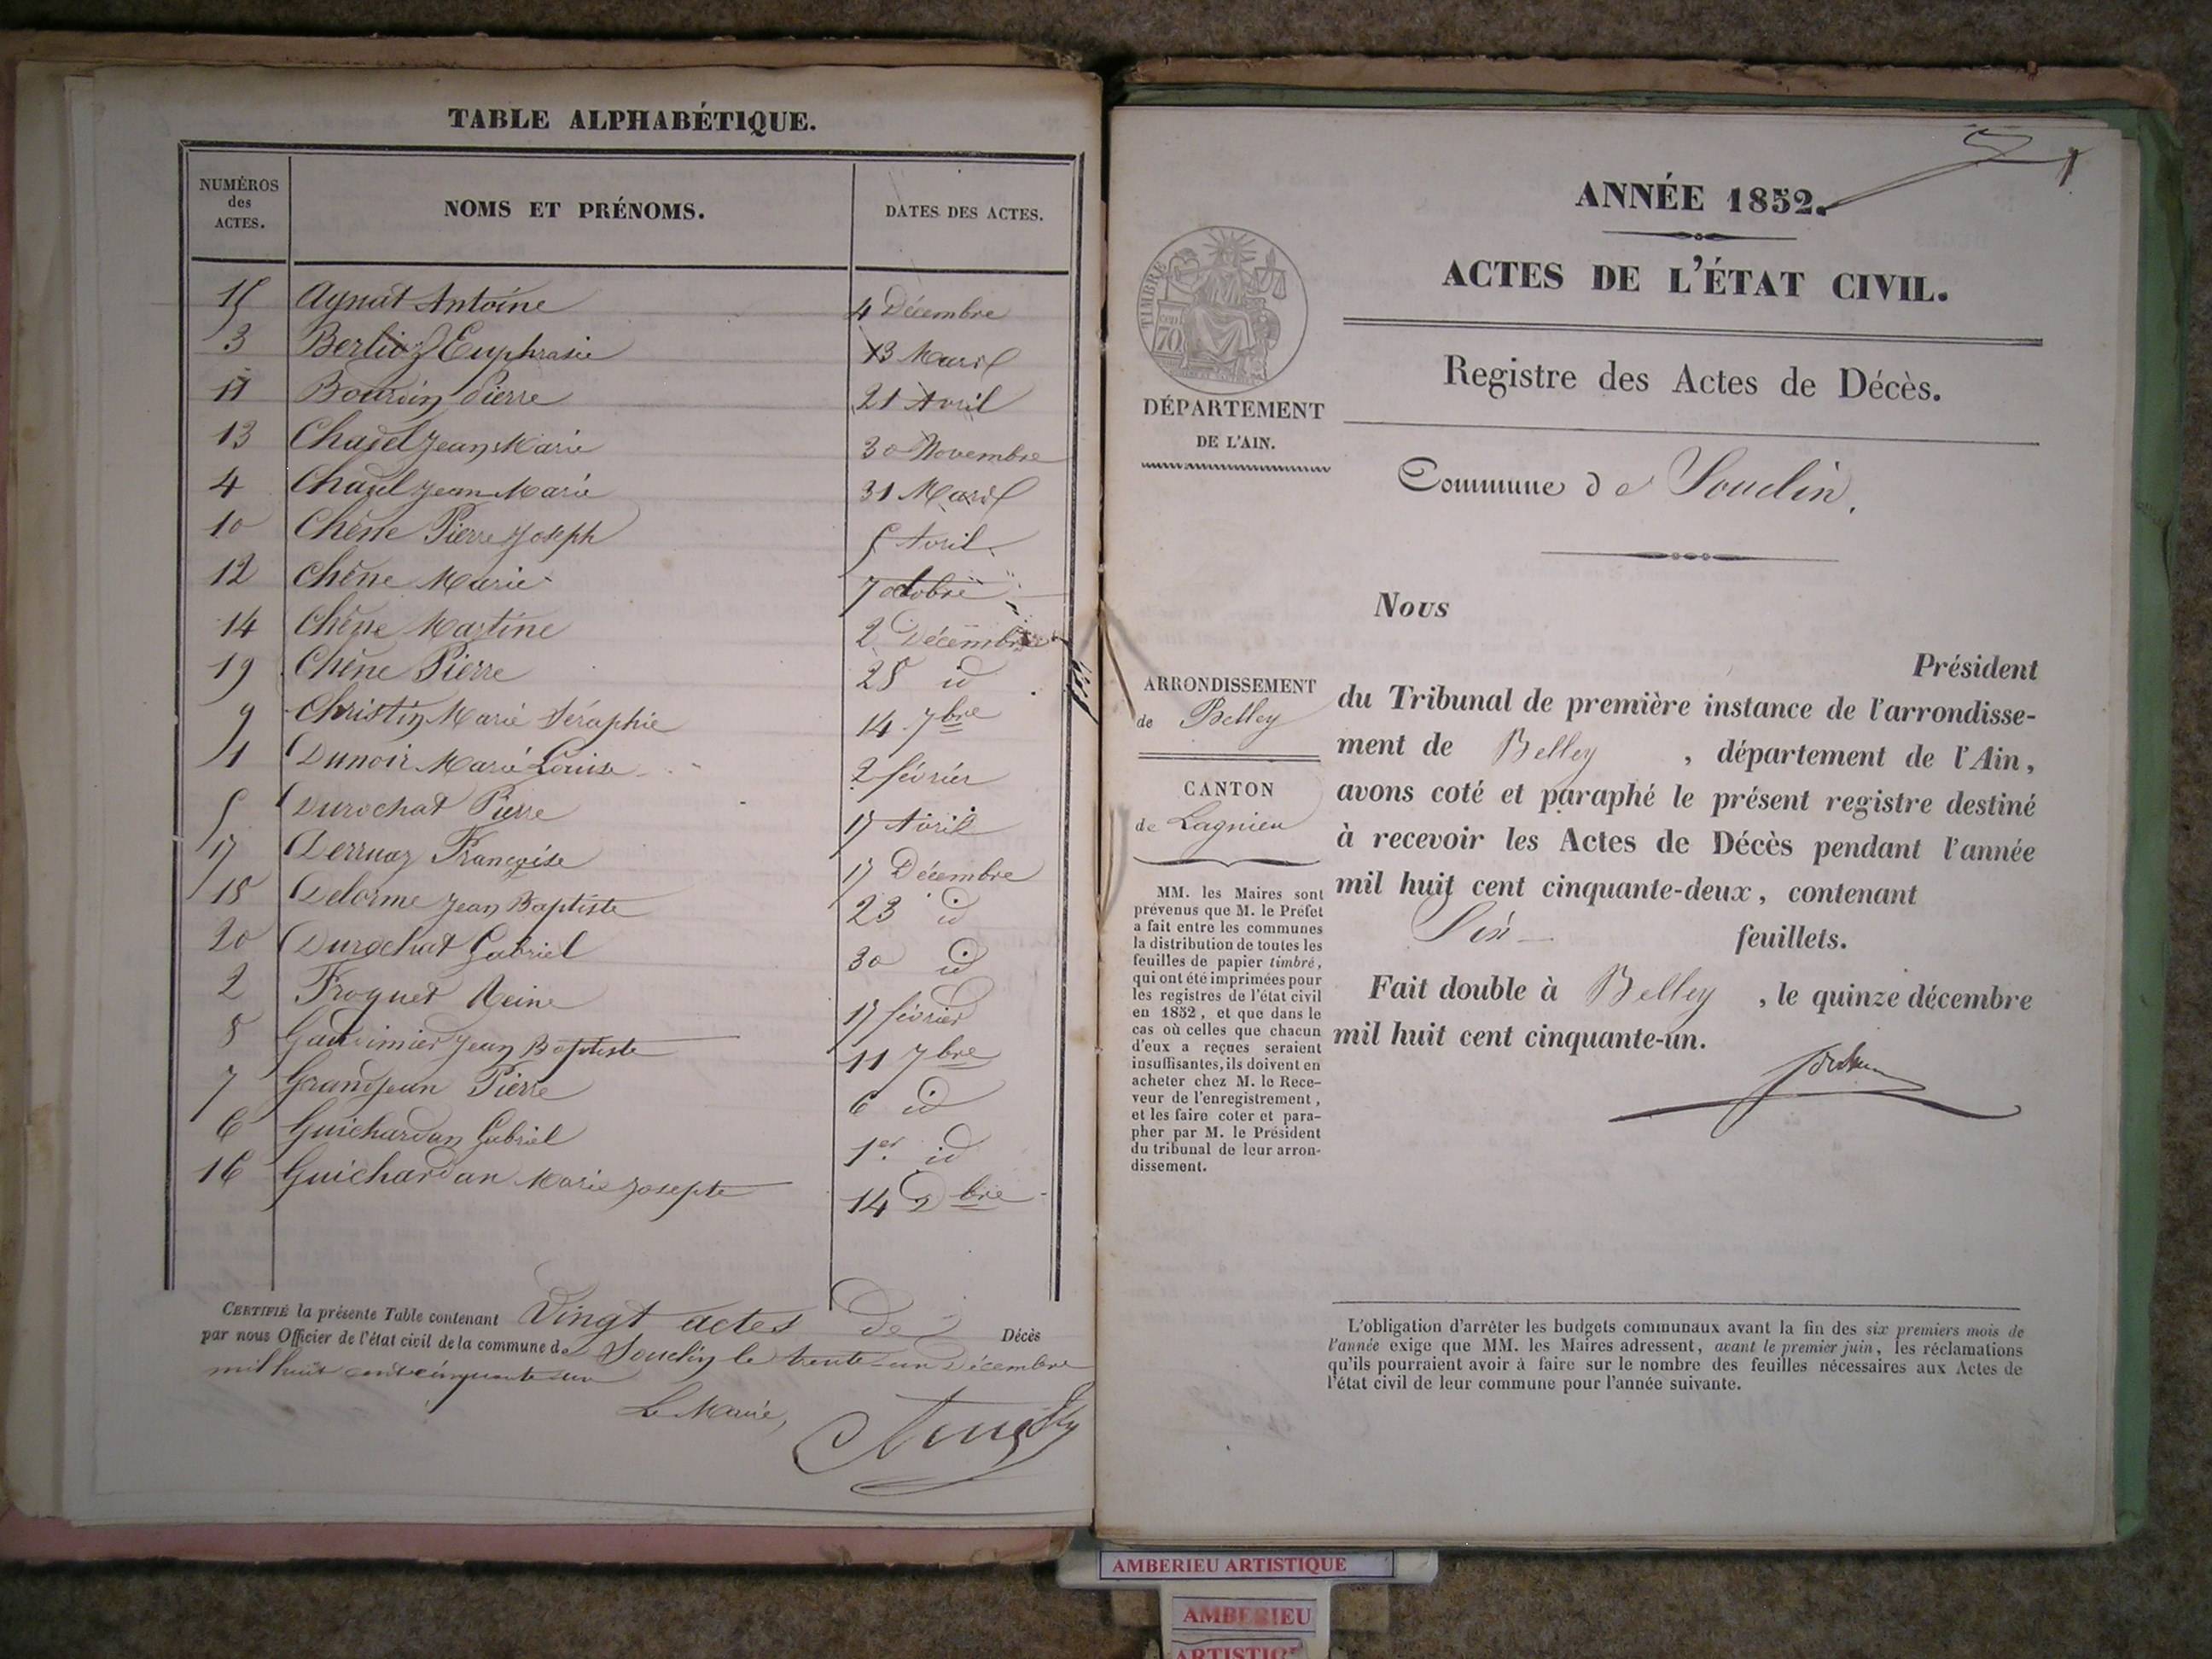 TABLE ALPHABÉTIQUE.
NUMÉROS des ACTES. NOMS ET PRÉNOMS. DATES DES ACTES.
15 Aynat Antoine 4 Décembre
3 Berlioz Euphrasie 13 Mars
11 Bourdin Pierre 21 Avril
13 Chazel Jean Marie 30 Novembre
4 Chazel Jean Marie 31 Mars
10 Chêne Pierre Joseph 5 Avril
12 Chêne Marie 7 octobre
14 Chêne Martine 2 Décembre
19 Chêne Pierre 28 id
9 Christin Marie Séraphie 14 7bre
1 Dunoir Marie Louise 2 février
5 Durochat Pierre 17 Avril
17 Derruaz Françoise 17 Décembre
18 Delorme Jean Baptiste 23 id
20 Durochat Gabriel 30 id
2 Froquet Reine 17 février
8 Jean Baptiste 11 7bre
7 Grandjean Pierre 6 id
6 Guichardan Gabriel 1er id
16 Guichardan Marie Josepte 14 Dbre
CERTIFIÉ la présente Table contenant Vingt actes de Décès
par nous Officier de l'état civil de la commune de Souclin le trente-un Décembre
mil huit cent cinquante
Le Maire,
ANNÉE 1852.
ACTES DE L'ÉTAT CIVIL.
Registre des Actes de Décès.
TIMBRE
70 cent
DÉPARTEMENT
DE L'AIN.
Commune de Souclin.
ARRONDISSEMENT
de Belley
CANTON
de Lagnieu
MM. les Maires sont
prévenus que M. le Préfet
a fait entre les communes
la distribution de toutes les
feuilles de papier timbré,
qui ont été imprimées pour
les registres de l'état civil
en 1852, et que dans le
cas où celles que chacun
d'eux a reçues seraient
insuffisantes, ils doivent en
acheter chez M. le Rece-
veur de l'enregistrement,
et les faire coter et para-
pher par M. le Président
du tribunal de leur arron-
dissement.
Nous
Président
du Tribunal de première instance de l'arrondisse-
ment de Belley, département de l'Ain,
avons coté et paraphé le présent registre destiné
à recevoir les Actes de Décès pendant l'année
mil huit cent cinquante-deux, contenant
Six feuillets.
Fait double à Belley, le quinze décembre
mil huit cent cinquante-un.
L'obligation d'arrêter les budgets communaux avant la fin des six premiers mois de
l'année exige que MM. les Maires adressent, avant le premier juin, les réclamations
qu'ils pourraient avoir à faire sur le nombre des feuilles nécessaires aux Actes de
l'état civil de leur commune pour l'année suivante.
AMBERIEU ARTISTIQUE
AMBERIEU
ARTISTIQ